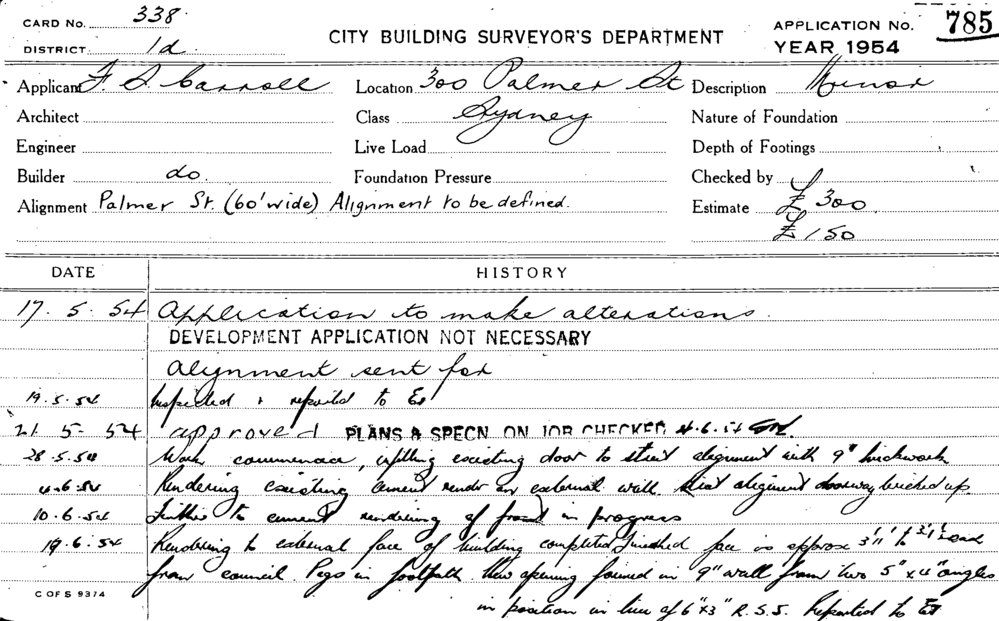 CARD No. 338.
DISTRICT 1d.
CITY BUILDING SURVEYOR'S DEPARTMENT
APPLICATION No. 785
YEAR 1954
Applicant F. Carroll Location 300 Palmer St Description Minor
Architect Class Sydney Nature of Foundation
Engineer Live Load Depth of Footings
Builder do. Foundation Pressure Checked by
Alignment Palmer St. (60' wide) Alignment to be defined. Estimate £300
£150
DATE HISTORY
17. 5. 54 Application to make alterations.
DEVELOPMENT APPLICATION NOT NECESSARY
Alignment sent for
19.5.54 Inspected & reported to
21 5. 54 approved PLANS & SPECN ON JOB CHECKED 4.6.54
28.5.54 Work commenced, existing door to street alignment with 9" brickwork
4.6.54 Rendering existing cement render on external wall. alignment doorway bricked up.
10.6.54 Further to cement rendering of front in progress
19.6.54 Rendering to external face of building completed finished face is approx 3'11" to
from council Pegs in footpath. New opening formed in 9" wall from two 5" x 4" angles
in position in lieu of 6"x3" R.S.J. Reported to
C OF S 9374